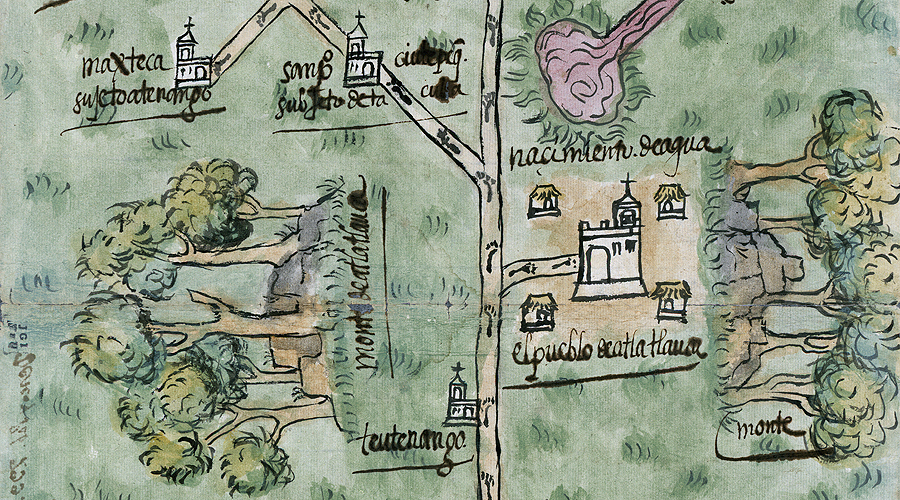 maxteca
sujetoatenango
sanpo
subjeto deta
naçimiento. deagua
monte deatlatlauca
el pueblo deatlatlauca
teutenango.
monte